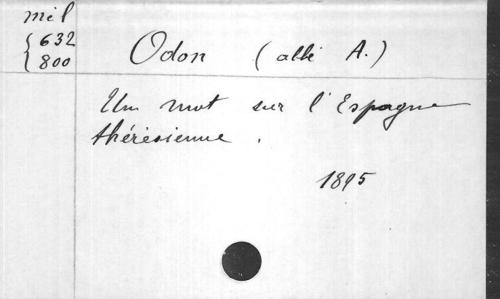 mél
{ 632
{ 800
Odon (abbé A.)
Un mot sur l'Espagne
thérésienne.
1895